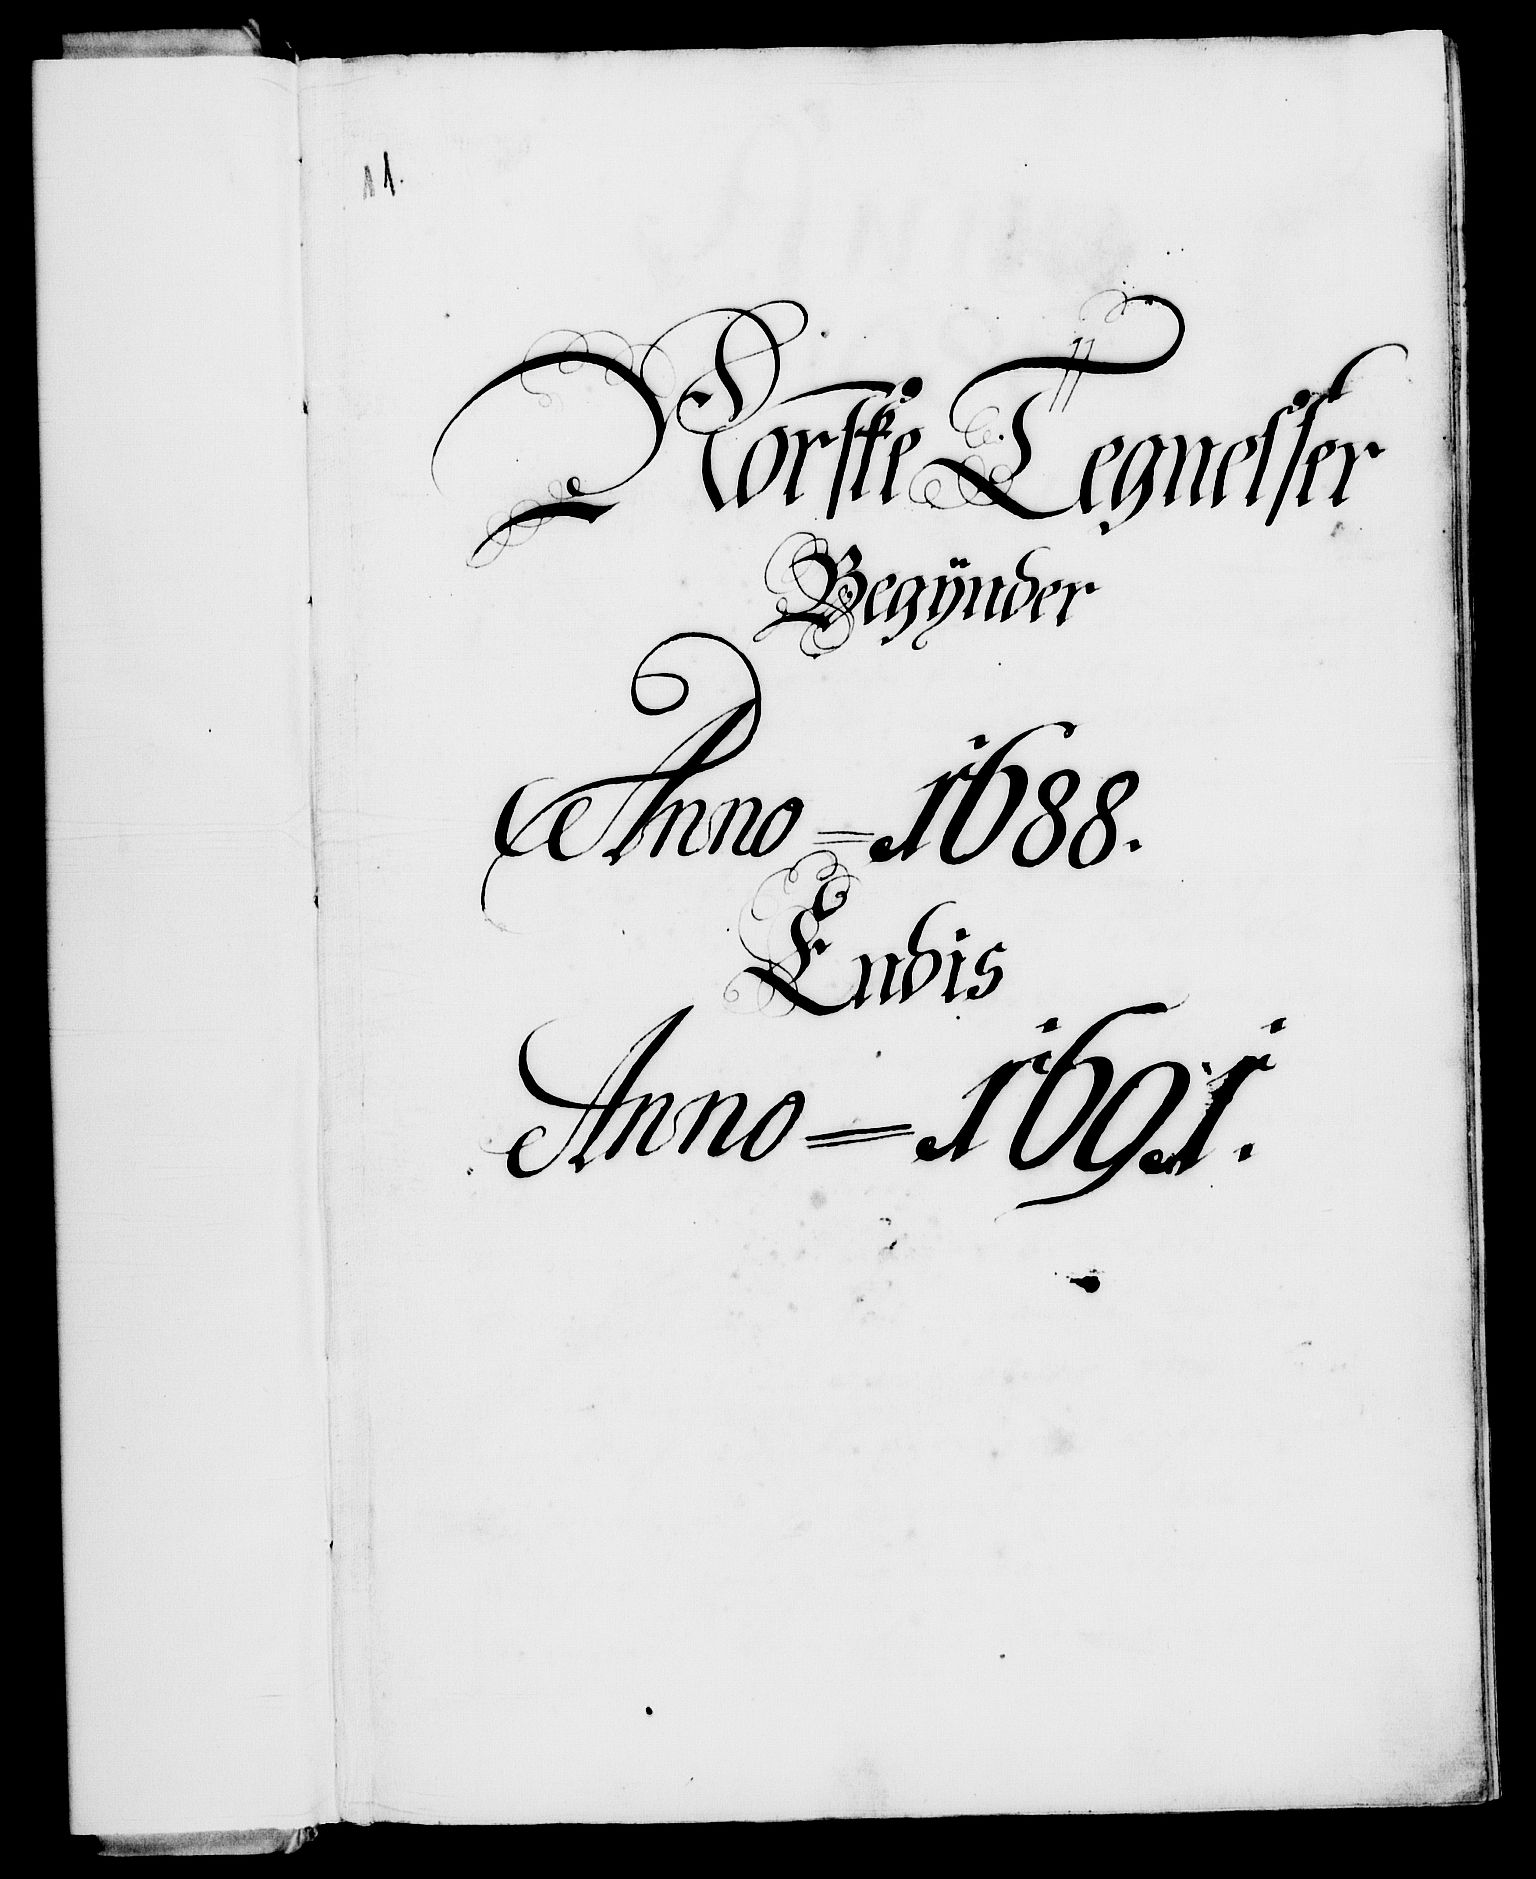 11.
Norske Tegnelser
Begÿnder
Anno = 1688.
Endis
Anno = 1691.